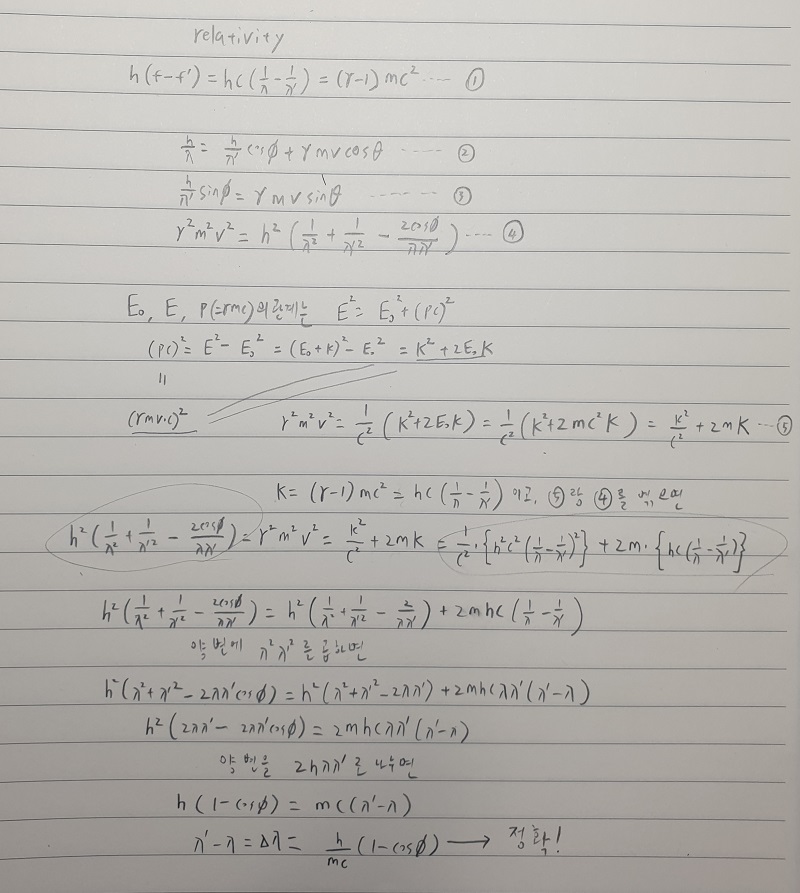 relativity
h(f-f') = hc(1/λ - 1/λ') = (γ-1)mc² ---- ①
h/λ = h/λ' cosφ + γmvcosθ ---- ②
h/λ' sinφ = γmvsinθ ---- ③
γ²m²v² = h²(1/λ² + 1/λ'² - 2cosφ/λλ') ---- ④
E₀, E, P(=γmc)의 관계는 E² = E₀² + (PC)²
(PC)² = E² - E₀² = (E₀+K)² - E₀² = K² + 2E₀K
=
(γmv·c)² γ²m²v² = 1/c² (K²+2E₀K) = 1/c² (K²+2mc²K) = K²/c² + 2mK --- ⑤
K = (γ-1)mc² = hc(1/λ - 1/λ') 이고, ⑤랑 ④를 엮으면
h²(1/λ² + 1/λ'² - 2cosφ/λλ') = γ²m²v² = K²/c² + 2mK = 1/c²·{h²c²(1/λ - 1/λ')²} + 2m·{hc(1/λ - 1/λ')}
h²(1/λ² + 1/λ'² - 2cosφ/λλ') = h²(1/λ² + 1/λ'² - 2/λλ') + 2mhc(1/λ - 1/λ')
양변에 λ²λ'²를 곱하면
h²(λ²+λ'²-2λλ'cosφ) = h²(λ²+λ'²-2λλ') + 2mhcλλ'(λ'-λ)
h²(2λλ' - 2λλ'cosφ) = 2mhcλλ'(λ'-λ)
양변을 2hλλ'로 나누면
h(1-cosφ) = mc(λ'-λ)
λ'-λ = Δλ = h/mc (1-cosφ) → 정확!